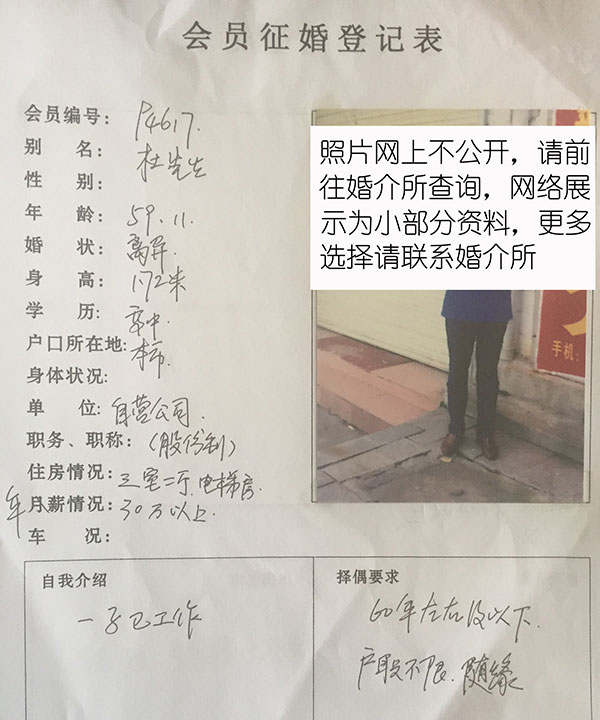 会员征婚登记表
会员编号: P4617.
别 名: 杜先生
性 别:
年 龄: 59.11.
婚 状: 离异.
身 高: 1.72米
学 历: 高中.
户口所在地: 本市.
身体状况:
单 位: 自营公司.
职务、职称: (股份制)
住房情况: 三室二厅.电梯房.
年月薪情况: 30万以上.
车 况:
照片网上不公开，请前
往婚介所查询，网络展
示为小部分资料，更多
选择请联系婚介所
手机:
自我介绍
一子已工作
择偶要求
60年左右及以下.
户职不限.随缘